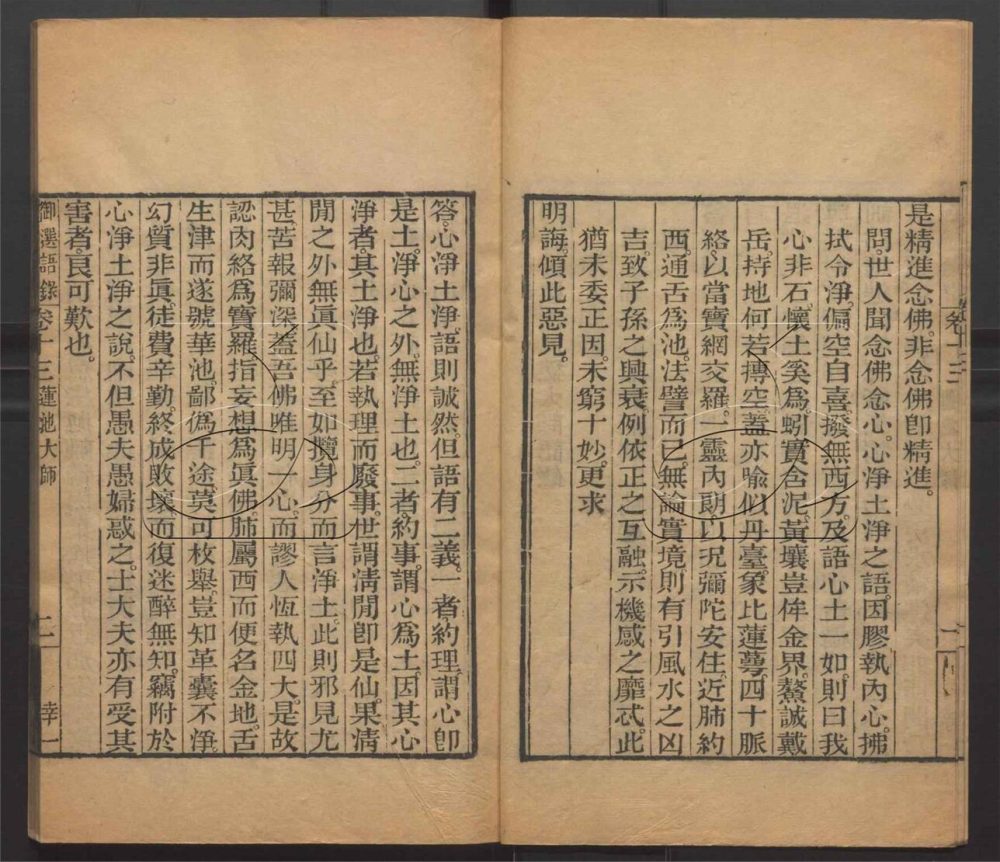 是精進念佛。非念佛卽精進。
問。世人聞念佛念心。心淨土淨之語。因膠執內心。拂
拭令淨。偏空自喜。撥無西方。及語心土一如。則曰我
心非石。懷土奚爲。蚓實含泥。黃壤豈侔金界。鰲誠戴
岳。持地何若摶空。蓋亦喻似丹臺。象比蓮蕚。四十脈
絡。以當寶網交羅。一靈內朗。以況彌陀安住。近肺約
西。通舌爲池。法譬而已。無論實境。則有引風水之凶
吉。致子孫之興衰。例依正之互融。示機感之靡忒。此
猶未委正因。未窮十妙。更求
明誨。傾此惡見。
答。心淨土淨。語則誠然。但語有二義。一者約理。謂心卽
是土。淨心之外。無淨土也。二者約事。謂心爲土因。其心
淨者。其土淨也。若執理而廢事。世謂清閒卽是仙。果清
閒之外無眞仙乎。至如攬身分而言淨土。此則邪見尤
甚。苦報彌深。蓋吾佛唯明一心。而謬人恆執四大。是故
認肉絡爲寶羅。指妄想爲眞佛。肺屬西而便名金地。舌
生津而遂號華池。鄙僞千途。莫可枚舉。豈知革囊不淨。
幻質非眞。徒費辛勤。終成敗壞。而復迷醉無知。竊附於
心淨土淨之說。不但愚夫愚婦惑之。士大夫亦有受其
害者。良可歎也。
御選語錄卷十三 蓮池大師 二 幸一